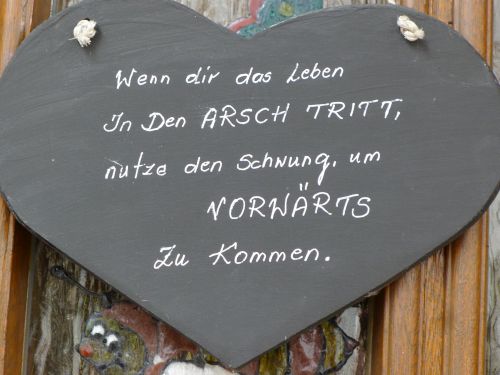 Wenn dir das Leben
In Den ARSCH TRITT,
nutze den Schwung, um
VORWÄRTS
Zu Kommen.